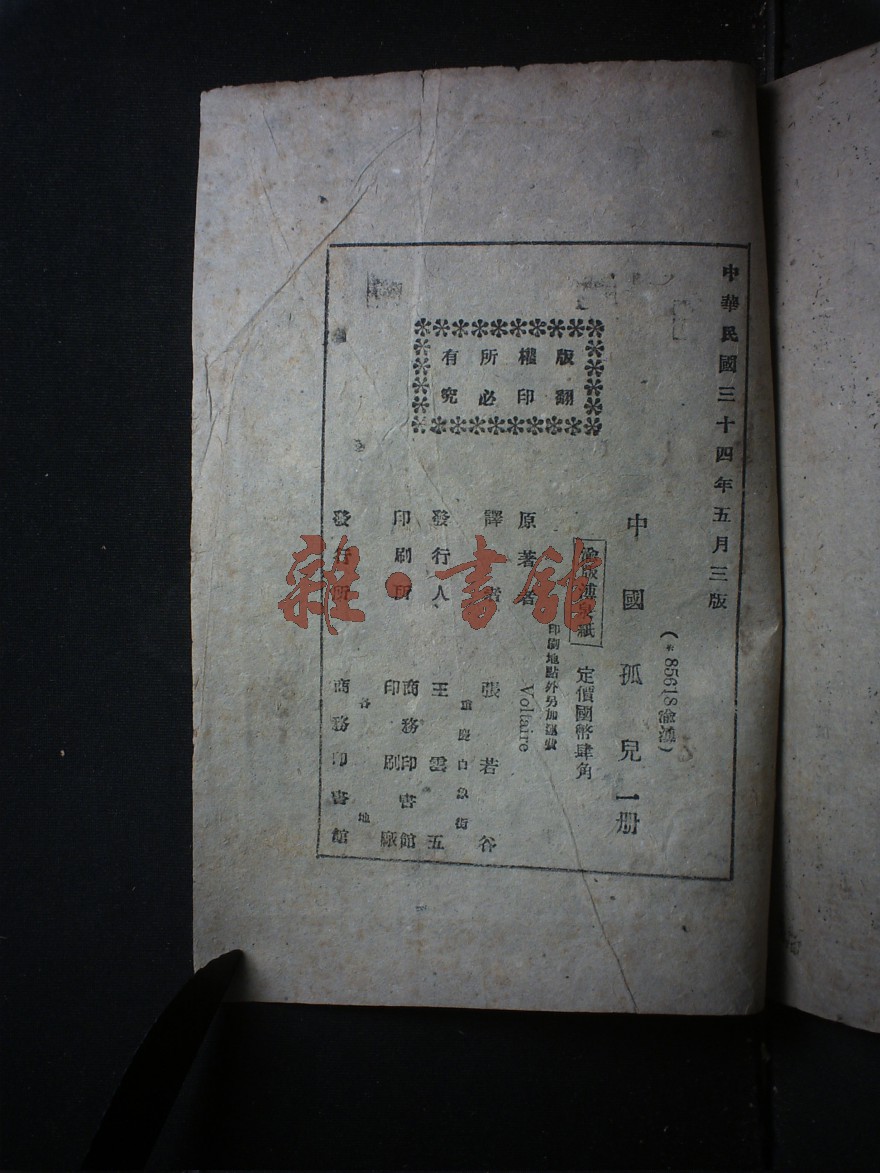 中華民國三十四年五月三版
(*85618渝滬)
中國孤兒一册
渝版薄業紙 定價國幣肆角
印刷地點外另加運費
原著者 Voltaire
譯者 張若谷
重慶白象街
發行人 王雲五
印刷所 商務印書館印刷廠
各地
發行所 商務印書館
版權所有
翻印必究
雜·書館